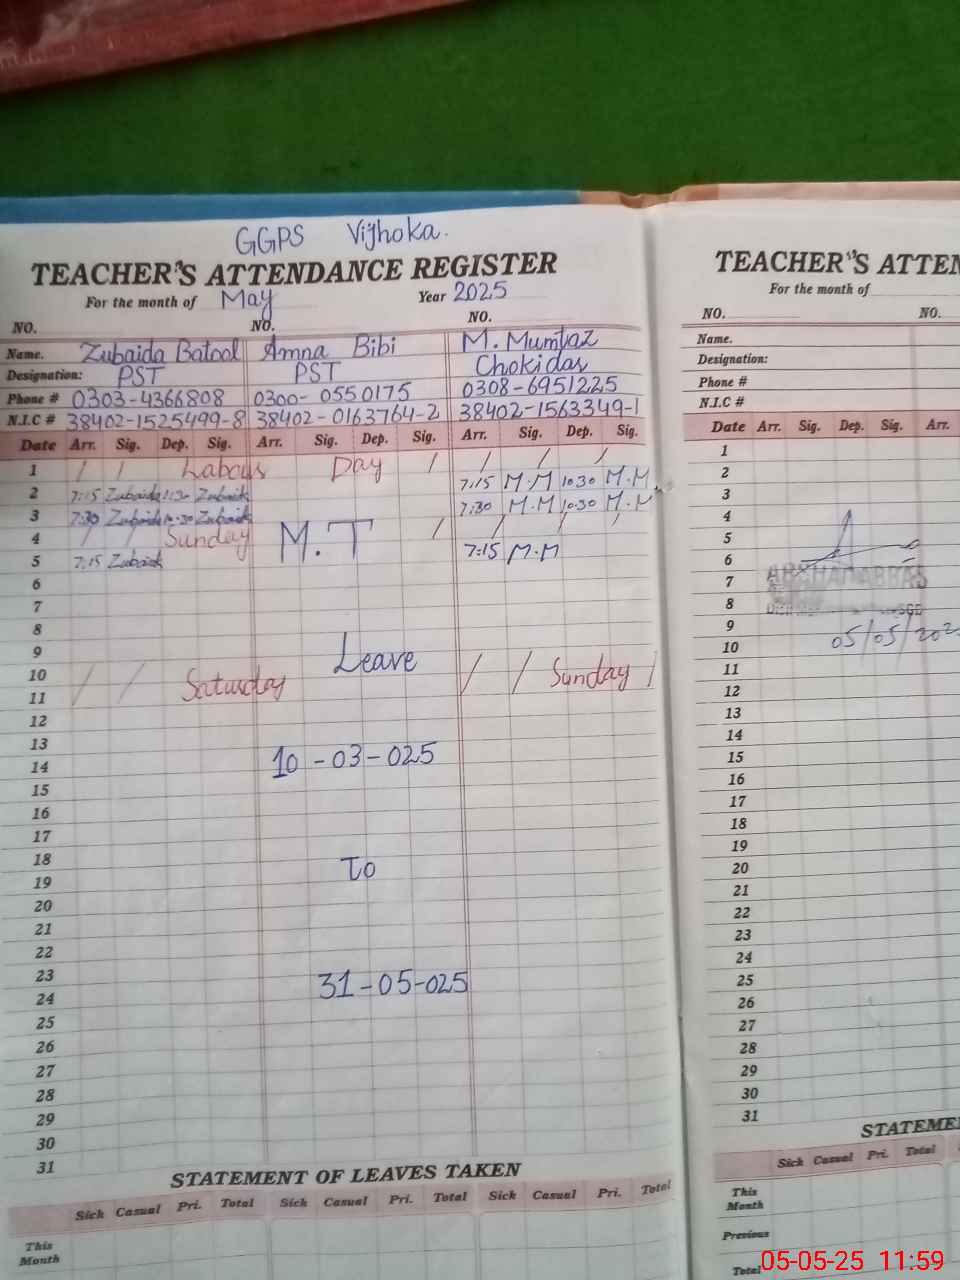 GGPS Vijhoka.
TEACHER'S ATTENDANCE REGISTER
For the month of May Year 2025
NO. NO. NO.
Name. Zubaida Batool Amna Bibi M. Mumtaz
Designation: PST PST Chokidar
Phone # 0303-4366808 0300-0550175 0308-6951225
N.I.C # 38402-1525499-8 38402-0163764-2 38402-1563349-1
Date Arr. Sig. Dep. Sig. Arr. Sig. Dep. Sig. Arr. Sig. Dep. Sig.
1 / / Labour Day / / / /
2 7:15 Zubaida 1:30 Zubaida 7:15 M.M 10:30 M.M
3 7:30 Zubaida 10:30 Zubaida 7:30 M.M 10:30 M.M
4 / / Sunday M.T / / / /
5 7:15 Zubaida 7:15 M.M
6
7
8
9 Leave
10 / / Saturday / / Sunday /
11
12
13
14 10-03-025
15
16
17
18
19 To
20
21
22
23
24 31-05-025
25
26
27
28
29
30
31
STATEMENT OF LEAVES TAKEN
Sick Casual Pri. Total Sick Casual Pri. Total Sick Casual Pri. Total
This
Month
TEACHER'S ATTEN
For the month of
NO. NO.
Name.
Designation:
Phone #
N.I.C #
Date Arr. Sig. Dep. Sig. Arr.
1
2
3
4
5
6
7
8
9
10 05/05/202
11
12
13
14
15
16
17
18
19
20
21
22
23
24
25
26
27
28
29
30
31
STATEME
Sick Casual Pri. Total
This
Month
Previous
Total
05-05-25 11:59